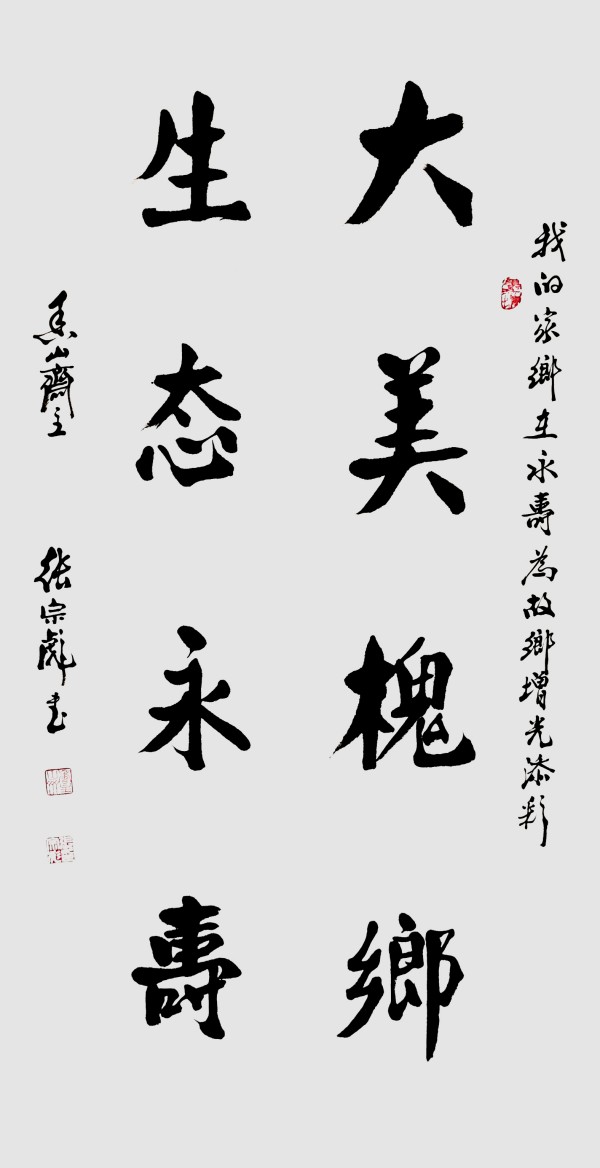 我的家鄉在永壽為故鄉增光添彩
大美槐鄉
生态永壽
香山齋主 张宗彪书